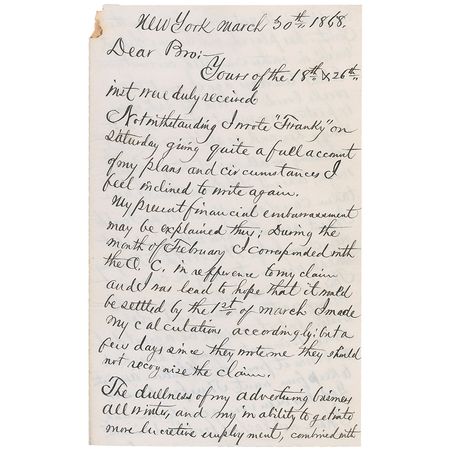 New York March 30th 1868.
Dear Bro:-
Yours of the 18th & 26th
inst were duly received
Notwithstanding I wrote "Franky" on
Saturday giving quite a full account
of my plans and circumstances I
feel inclined to write again.
My present financial embarrassment
may be explained thus; During the
month of February I corresponded with
the Q. C. in refference to my claim
and I was lead to hope that it would
be settled by the 1st of March I made
my calculations accordingly; but a
few days since they wrote me they should
not recognise the claim.
The dullness of my advertising business
all winter, and my inability to get into
more lucretive employment, combined with